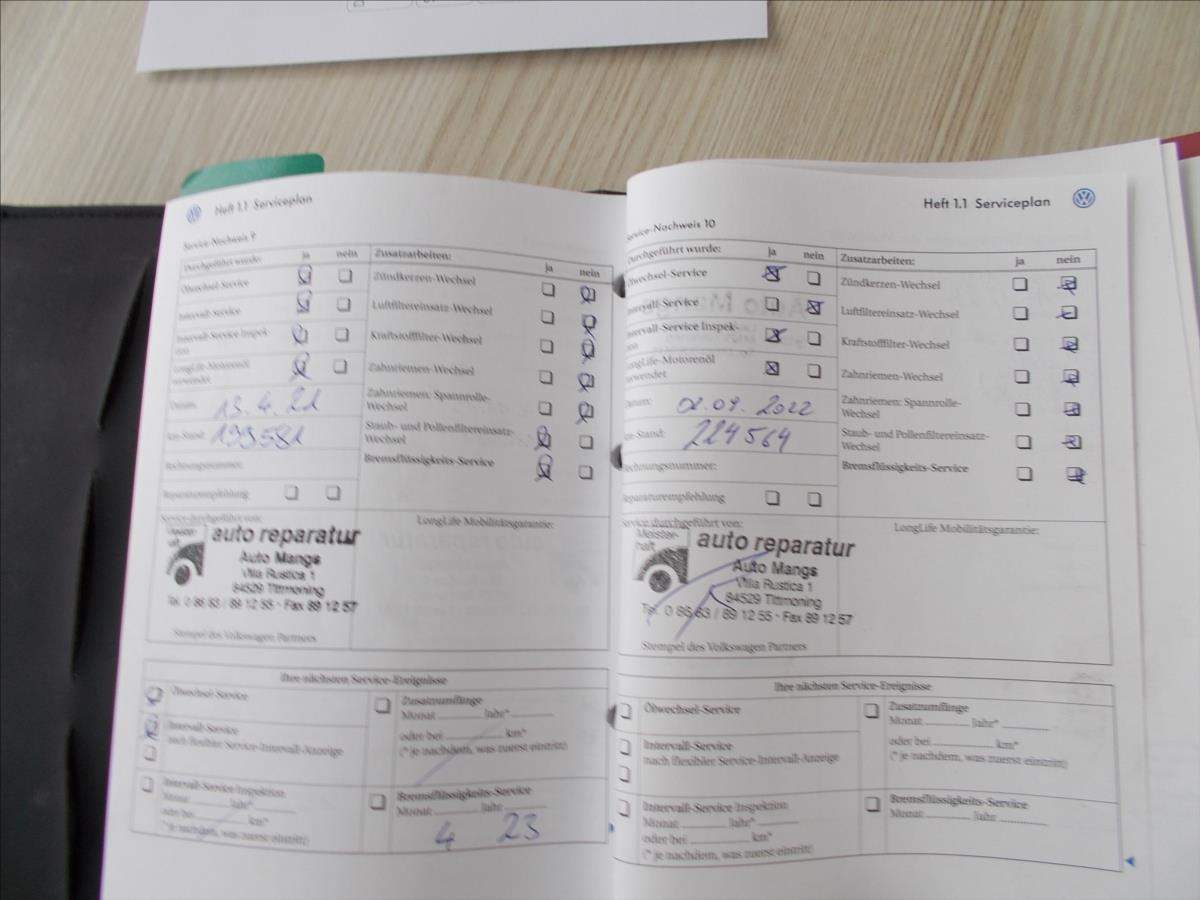 Heft 1.1 Serviceplan
Service-Nachweis 9
Durchgeführt wurde: ja nein
Ölwechsel-Service
Intervall-Service
Intervall-Service Inspek-
tion
LongLife-Motorenöl
verwendet
Datum: 13.4.21
km-Stand: 199581
Rechnungsnummer:
Reparaturempfehlung
Zusatzarbeiten: ja nein
Zündkerzen-Wechsel
Luftfiltereinsatz-Wechsel
Kraftstofffilter-Wechsel
Zahnriemen-Wechsel
Zahnriemen: Spannrolle-
Wechsel
Staub- und Pollenfiltereinsatz-
Wechsel
Bremsflüssigkeits-Service
Service durchgeführt von:
auto reparatur
Auto Mangs
Villa Rustica 1
84529 Tittmoning
Tel. 0 86 83 / 89 12 55 - Fax 89 12 57
Stempel des Volkswagen Partners
LongLife Mobilitätsgarantie:
Ihre nächsten Service-Ereignisse
Ölwechsel-Service
Intervall-Service
nach flexibler Service-Intervall-Anzeige
Intervall-Service/Inspektion
Monat Jahr*
oder bei km*
(* je nachdem, was zuerst eintritt)
Zusatzumfänge
Monat Jahr*
oder bei km*
(* je nachdem, was zuerst eintritt)
Bremsflüssigkeits-Service
Monat Jahr
4 23
Heft 1.1 Serviceplan
Service-Nachweis 10
Durchgeführt wurde: ja nein
Ölwechsel-Service
Intervall-Service
Intervall-Service Inspek-
tion
LongLife-Motorenöl
verwendet
Datum: 02.09.2022
km-Stand: 224564
Rechnungsnummer:
Reparaturempfehlung
Zusatzarbeiten: ja nein
Zündkerzen-Wechsel
Luftfiltereinsatz-Wechsel
Kraftstofffilter-Wechsel
Zahnriemen-Wechsel
Zahnriemen: Spannrolle-
Wechsel
Staub- und Pollenfiltereinsatz-
Wechsel
Bremsflüssigkeits-Service
Service durchgeführt von:
Meister-
haft
auto reparatur
Auto Mangs
Villa Rustica 1
84529 Tittmoning
Tel. 0 86 83 / 89 12 55 - Fax 89 12 57
Stempel des Volkswagen Partners
LongLife Mobilitätsgarantie:
Ihre nächsten Service-Ereignisse
Ölwechsel-Service
Intervall-Service
nach flexibler Service-Intervall-Anzeige
Intervall-Service/Inspektion
Monat Jahr*
oder bei km*
(* je nachdem, was zuerst eintritt)
Zusatzumfänge
Monat Jahr*
oder bei km*
(* je nachdem, was zuerst eintritt)
Bremsflüssigkeits-Service
Monat Jahr